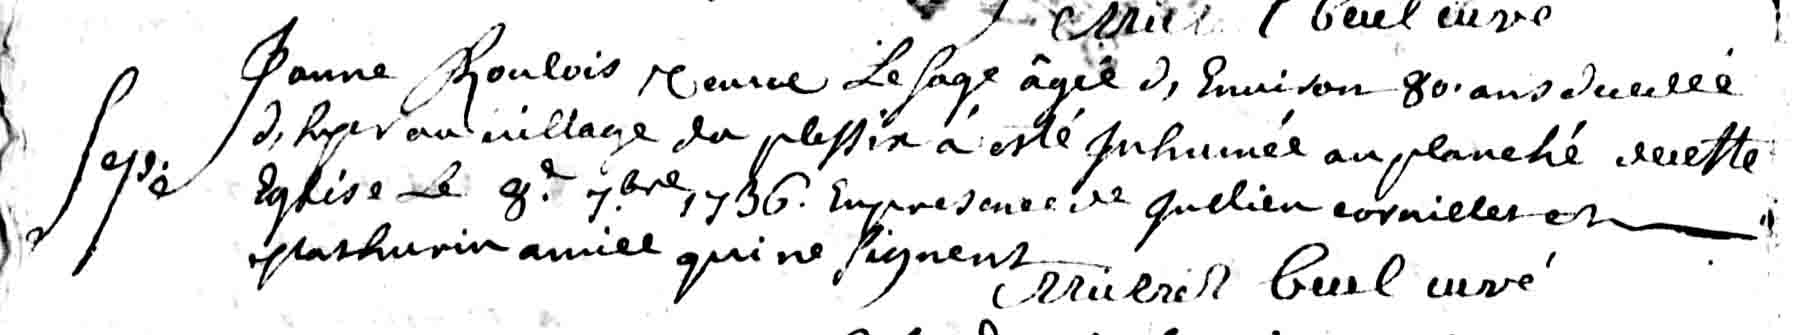 Curé
Janne Roulois veuve Le sage âgée d'Environ 80. ans decedéé
d'hyer au village du plessix á esté Inhuméé au planché decette
Sep.e
Eglise Le 8.e 7.bre 1736. Enpresence de Jullien cornillet et
Mathurin amice qui ne signent
curé